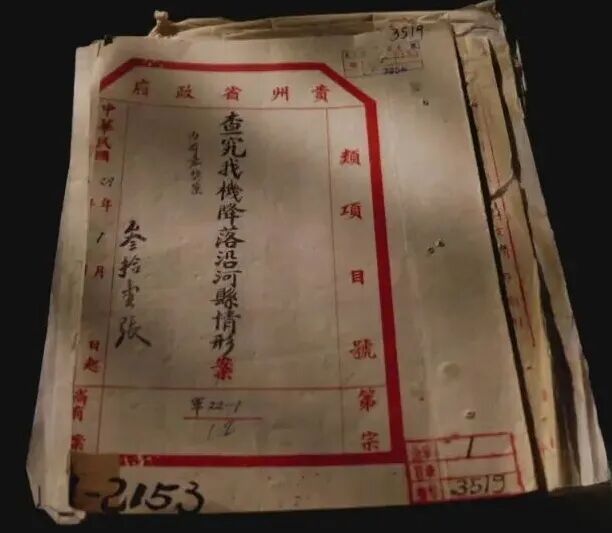 3519
貴州省政府
類項目號
第宗
查究我機降落沿河縣情形案
內有嘉獎案
叁拾壹張
中華民國
29年1月
日起
軍22-1
12
1
3519
1-2153